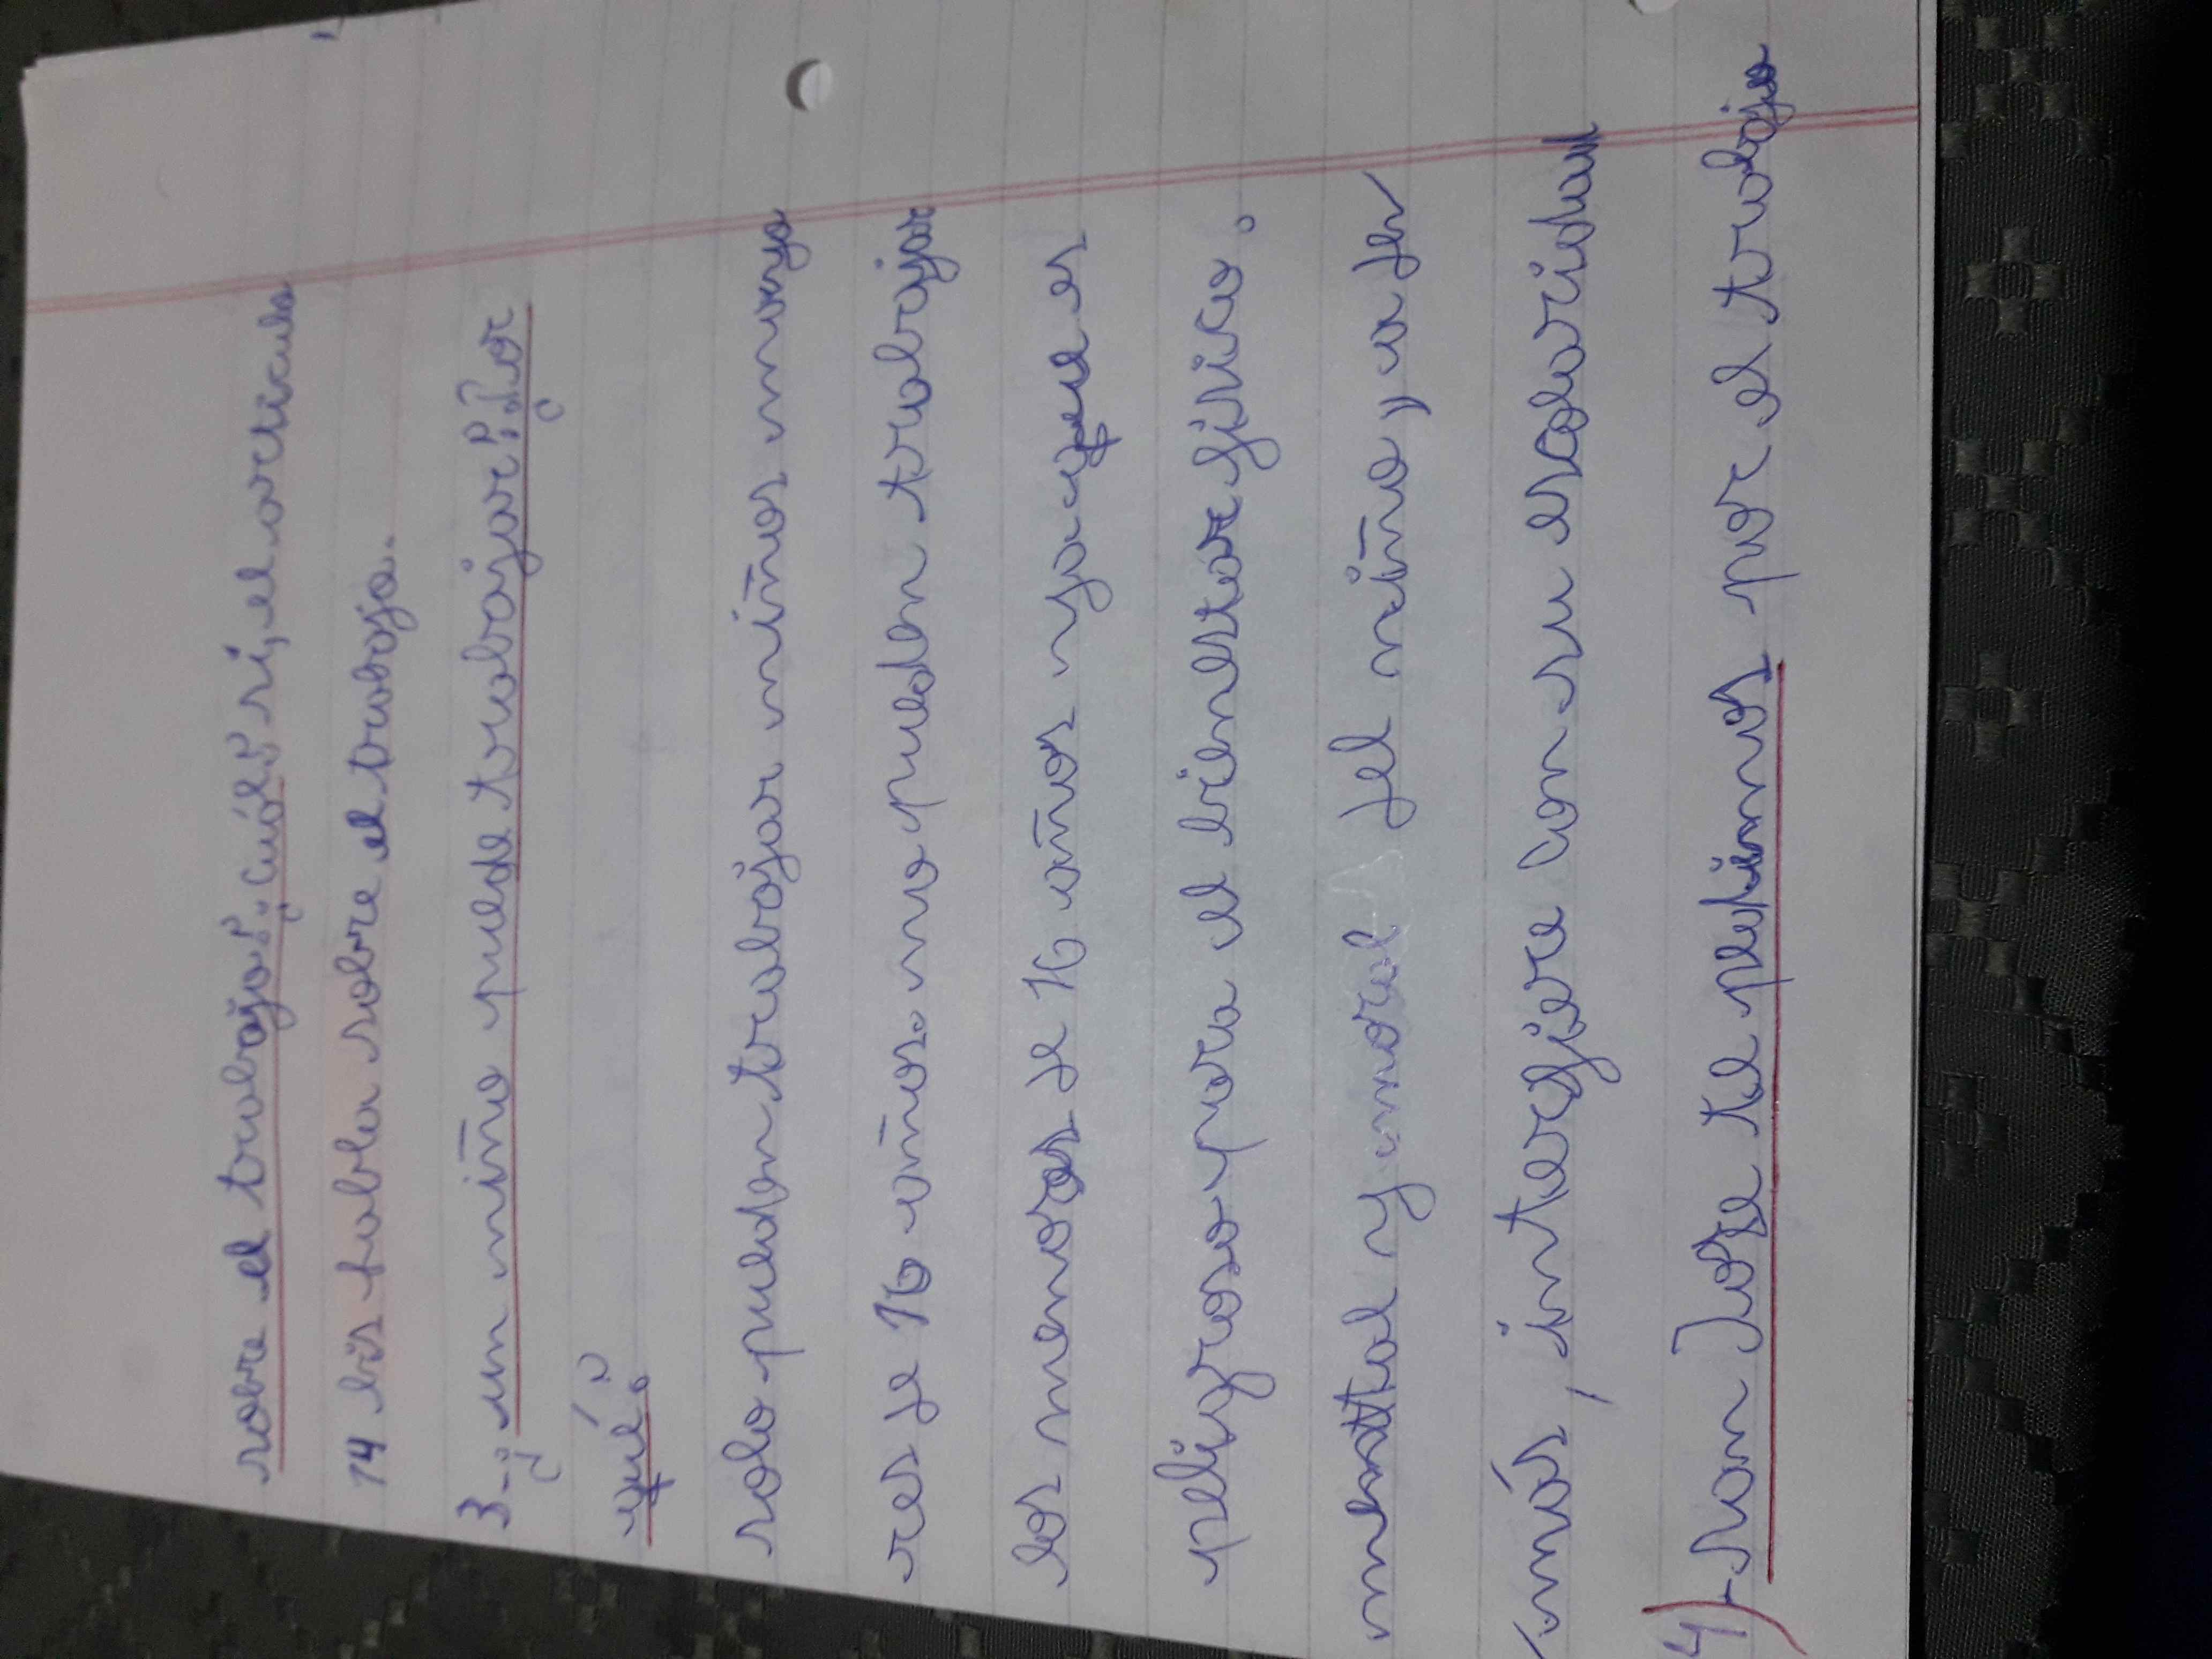 sobre el trabajo?¿cuál? si, el articulo
14 bis habla sobre el trabajo.
3-¿un niño puede trabajar?¿Por
qué?
solo pueden trabajar niños mayo
res de 16 años. no pueden trabajar
los menores de 16 años ya que es
peligroso para el bienestar fisico.
mental y moral del niño, a de
más, interfiere con su escolaridad
4)-san Jose te pedimos por el trabajo